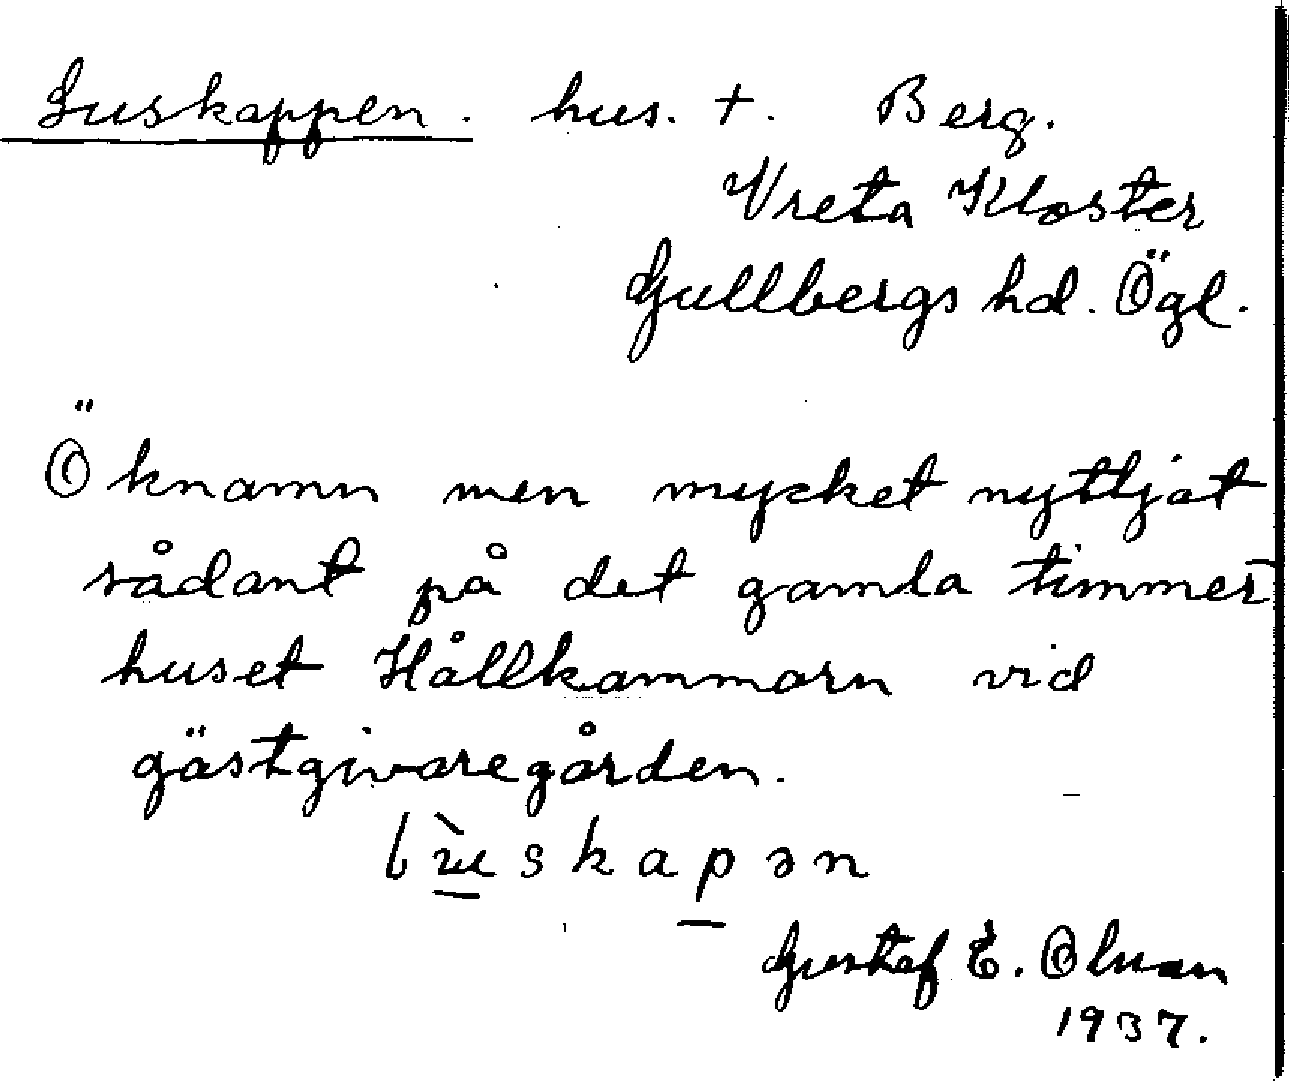 Luskappen. hus. †. Berg.
Vreta Kloster
Gullbergs hd. Ögl.
Öknamn men mycket nyttjat
sådant på det gamla timmer
huset Hållkammarn vid
gästgivaregården.
lùskapən
Gustaf E. Olman
1937.